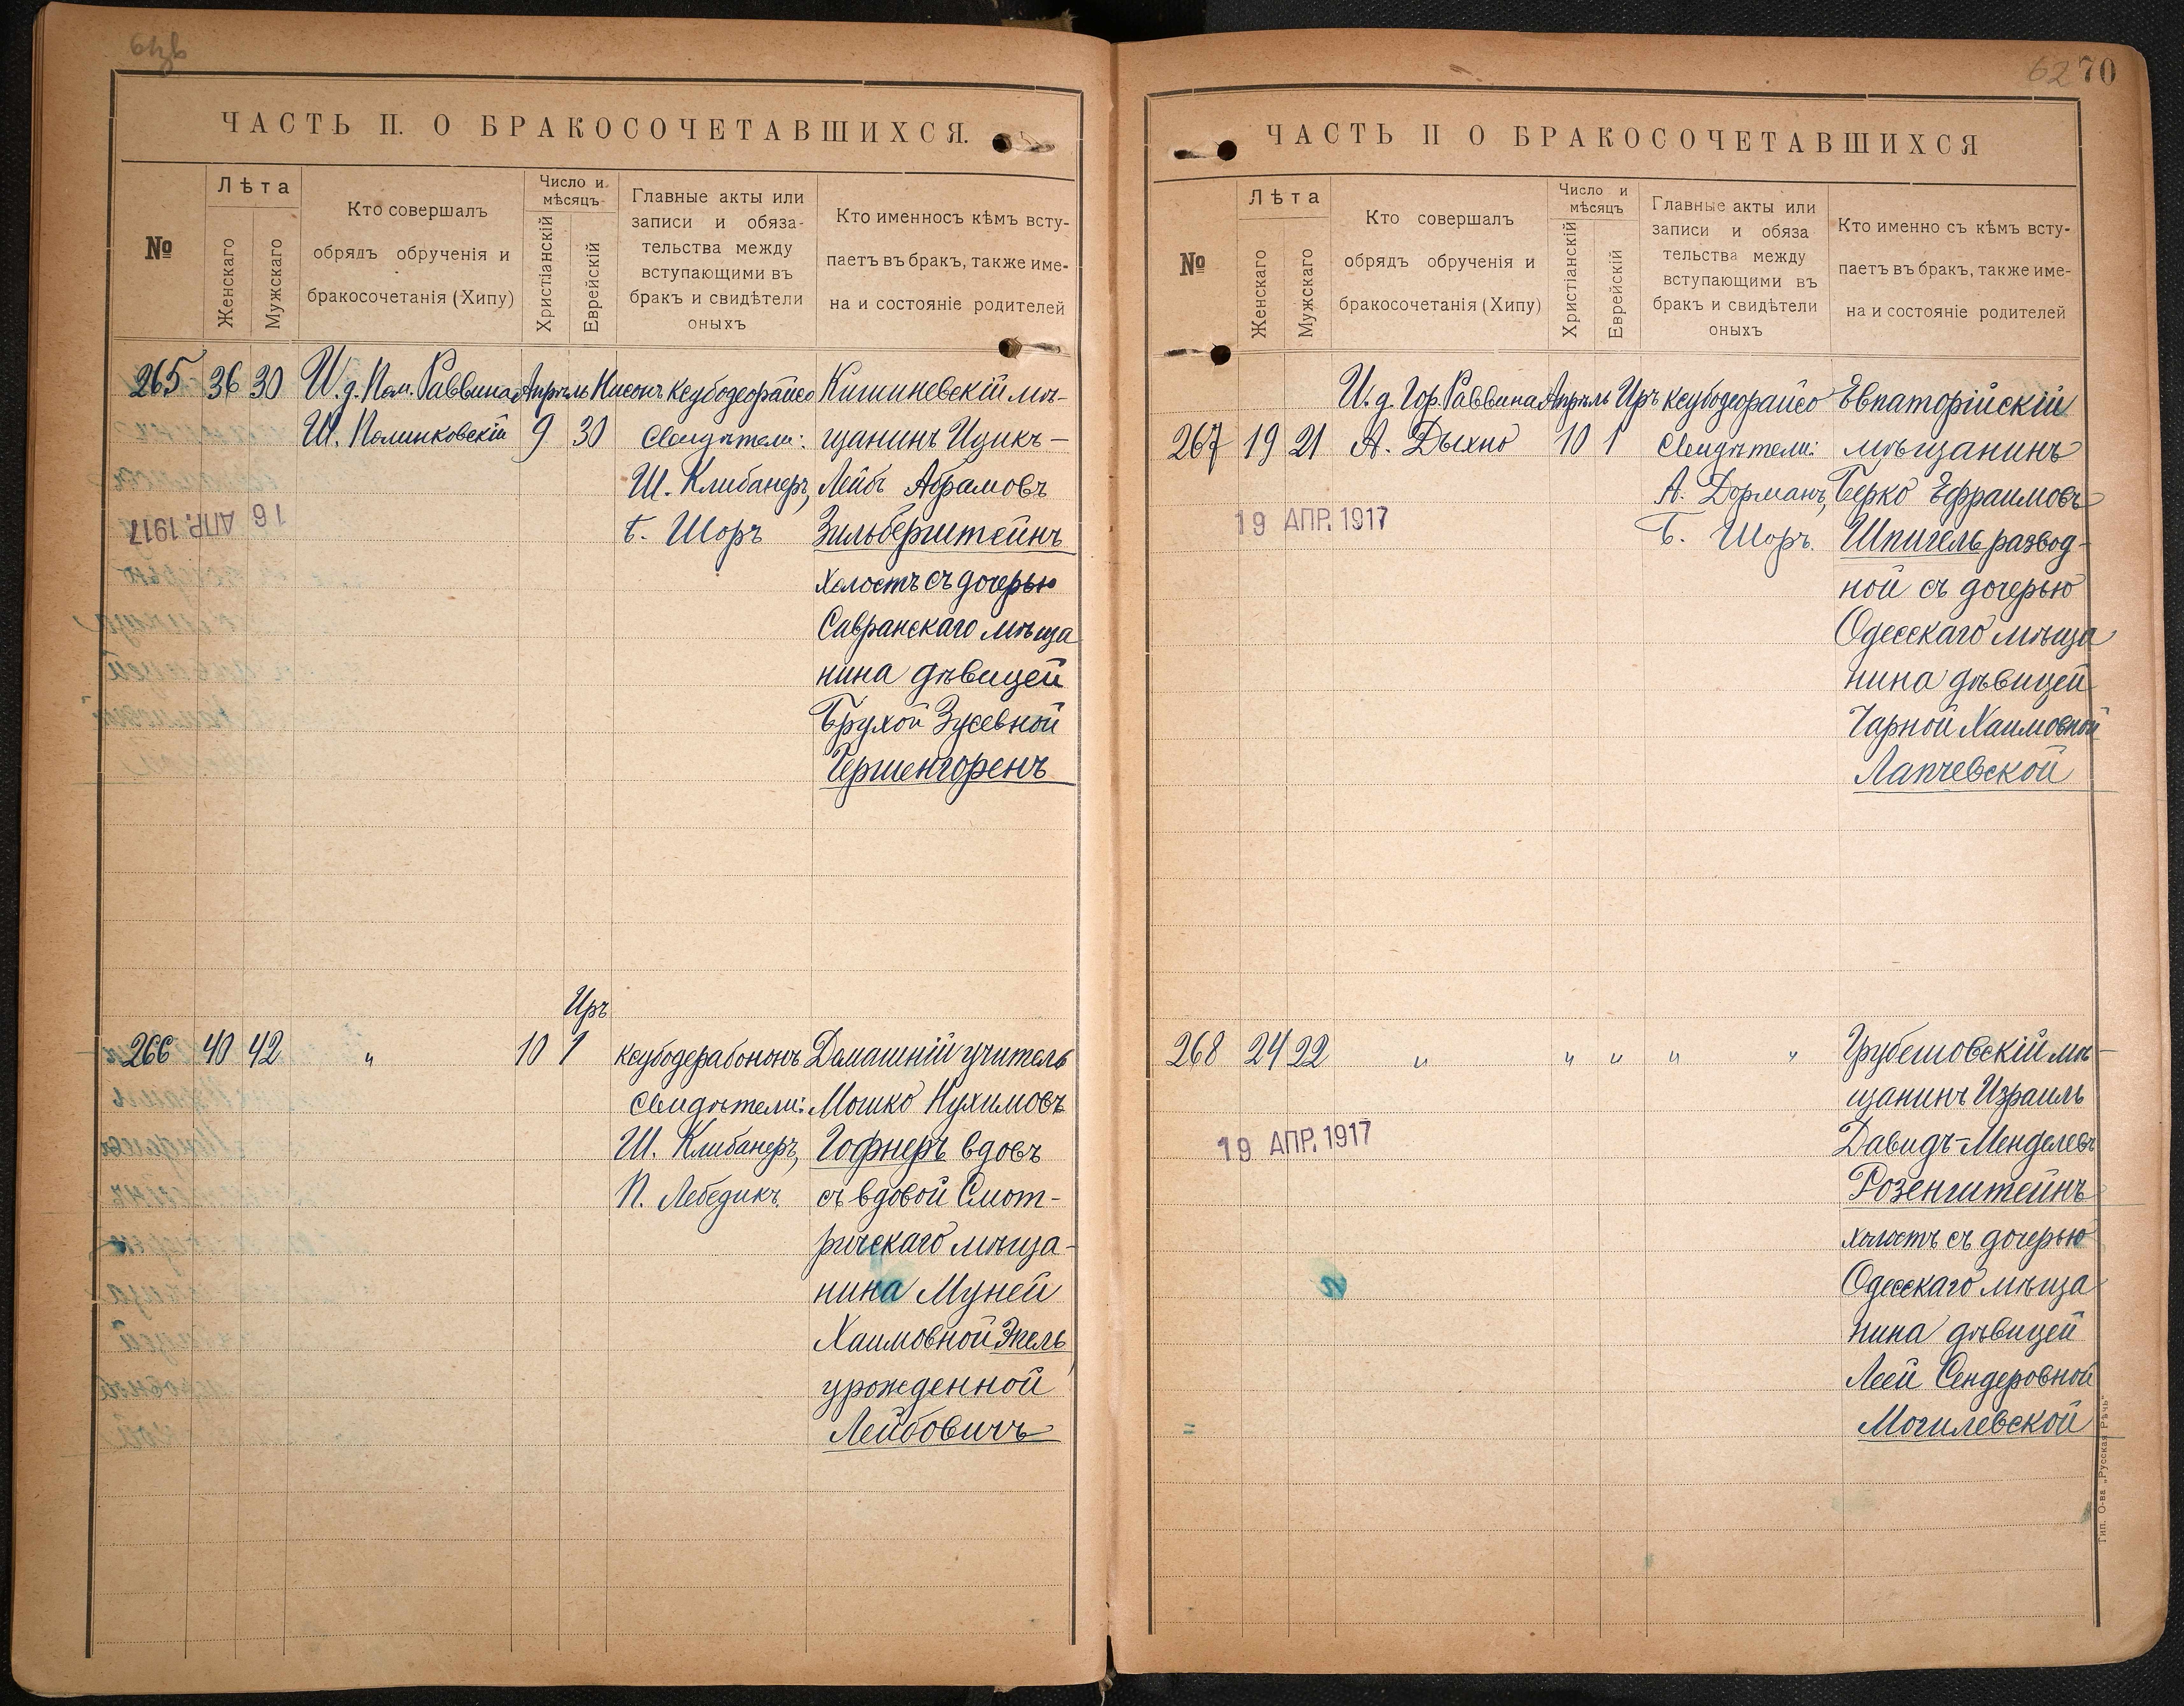 61об
ЧАСТЬ II. О БРАКОСОЧЕТАВШИХСЯ.
№
Лѣта
Женскаго
Мужскаго
Кто совершалъ
обрядъ обрученія и
бракосочетанія (Хипу)
Число и
мѣсяцъ
Христіанскій
Еврейскій
Главные акты или
записи и обяза-
тельства между
вступающими въ
бракъ и свидѣтели
оныхъ
Кто именносъ кѣмъ всту-
паетъ въ бракъ, также име-
на и состояніе родителей
265 36 30 И. д. Пом. Раввина Апрѣль Нисонъ Ксубодеорайсо Кишиневскій мѣ-
Ш. Полинковскій 9 30 Свидѣтели: щанинъ Ицикъ-
Ш. Клибанеръ, Лейбъ Абрамовъ
16 АПР. 1917
Б. Шоръ Зильберштейнъ
холостъ съ дочерью
Савранскаго мѣща
нина дѣвицей
Брухой Зусевной
Гершенгоренъ
Иръ
266 40 42 " 10 1 ксубодерабононъ Домашній учитель
Свидѣтели: Мошко Нухимовъ
Ш. Клибанеръ, Гофнеръ вдовъ
П. Лебедикъ. съ вдовой Смот-
ричскаго мѣща-
нина Муней
Хаимовной Экель
урожденной
Лейбовичъ
62 70
ЧАСТЬ II О БРАКОСОЧЕТАВШИХСЯ
№
Лѣта
Женскаго
Мужскаго
Кто совершалъ
обрядъ обрученія и
бракосочетанія (Хипу)
Число и
мѣсяцъ
Христіанскій
Еврейскій
Главные акты или
записи и обяза
тельства между
вступающими въ
бракъ и свидѣтели
оныхъ
Кто именно съ кѣмъ всту-
паетъ въ бракъ, также име-
на и состояніе родителей
И. д. Гор. Раввина Апрѣль Иръ ксубодеорайсо Евпаторійскій
267 19 21 А. Дыхно 10 1 Свидѣтели: мѣщанинъ
А. Дорманъ, Берко Ефраимовъ
19 АПР. 1917
Б. Шоръ. Шпигель развод-
ной съ дочерью
Одесскаго мѣща
нина дѣвицей
Чарной Хаимовной
Лапчевской
268 24 22 " " " " " Грубешовскій мѣ-
щанинъ Израиль
19 АПР. 1917
Давидъ-Менделевъ
Розенштейнъ
холостъ съ дочерью
Одесскаго мѣща
нина дѣвицей
Леей Сендеровной
Могилевской
Тип. О-ва „Русская Рѣчь"